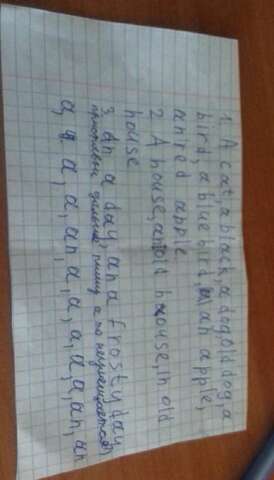 1. A cat, a black, a dog, old dog, a
bird, a blue bird, an apple,
an red apple
2 A house, an old house, in old
house
3. An a day an a frosty day
пишу а то не
a, a, a, a, an, a, a, a, a, a, an, an